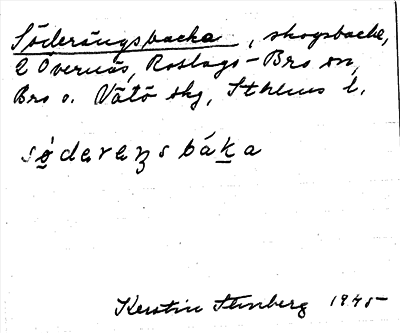 Söderängsbacka, skogsbacke,
Övernäs, Roslags-Bro sn,
Bro o. Vätö skg, Sthlms l.
södaraŋsbáka
Kerstin Stenberg 1945